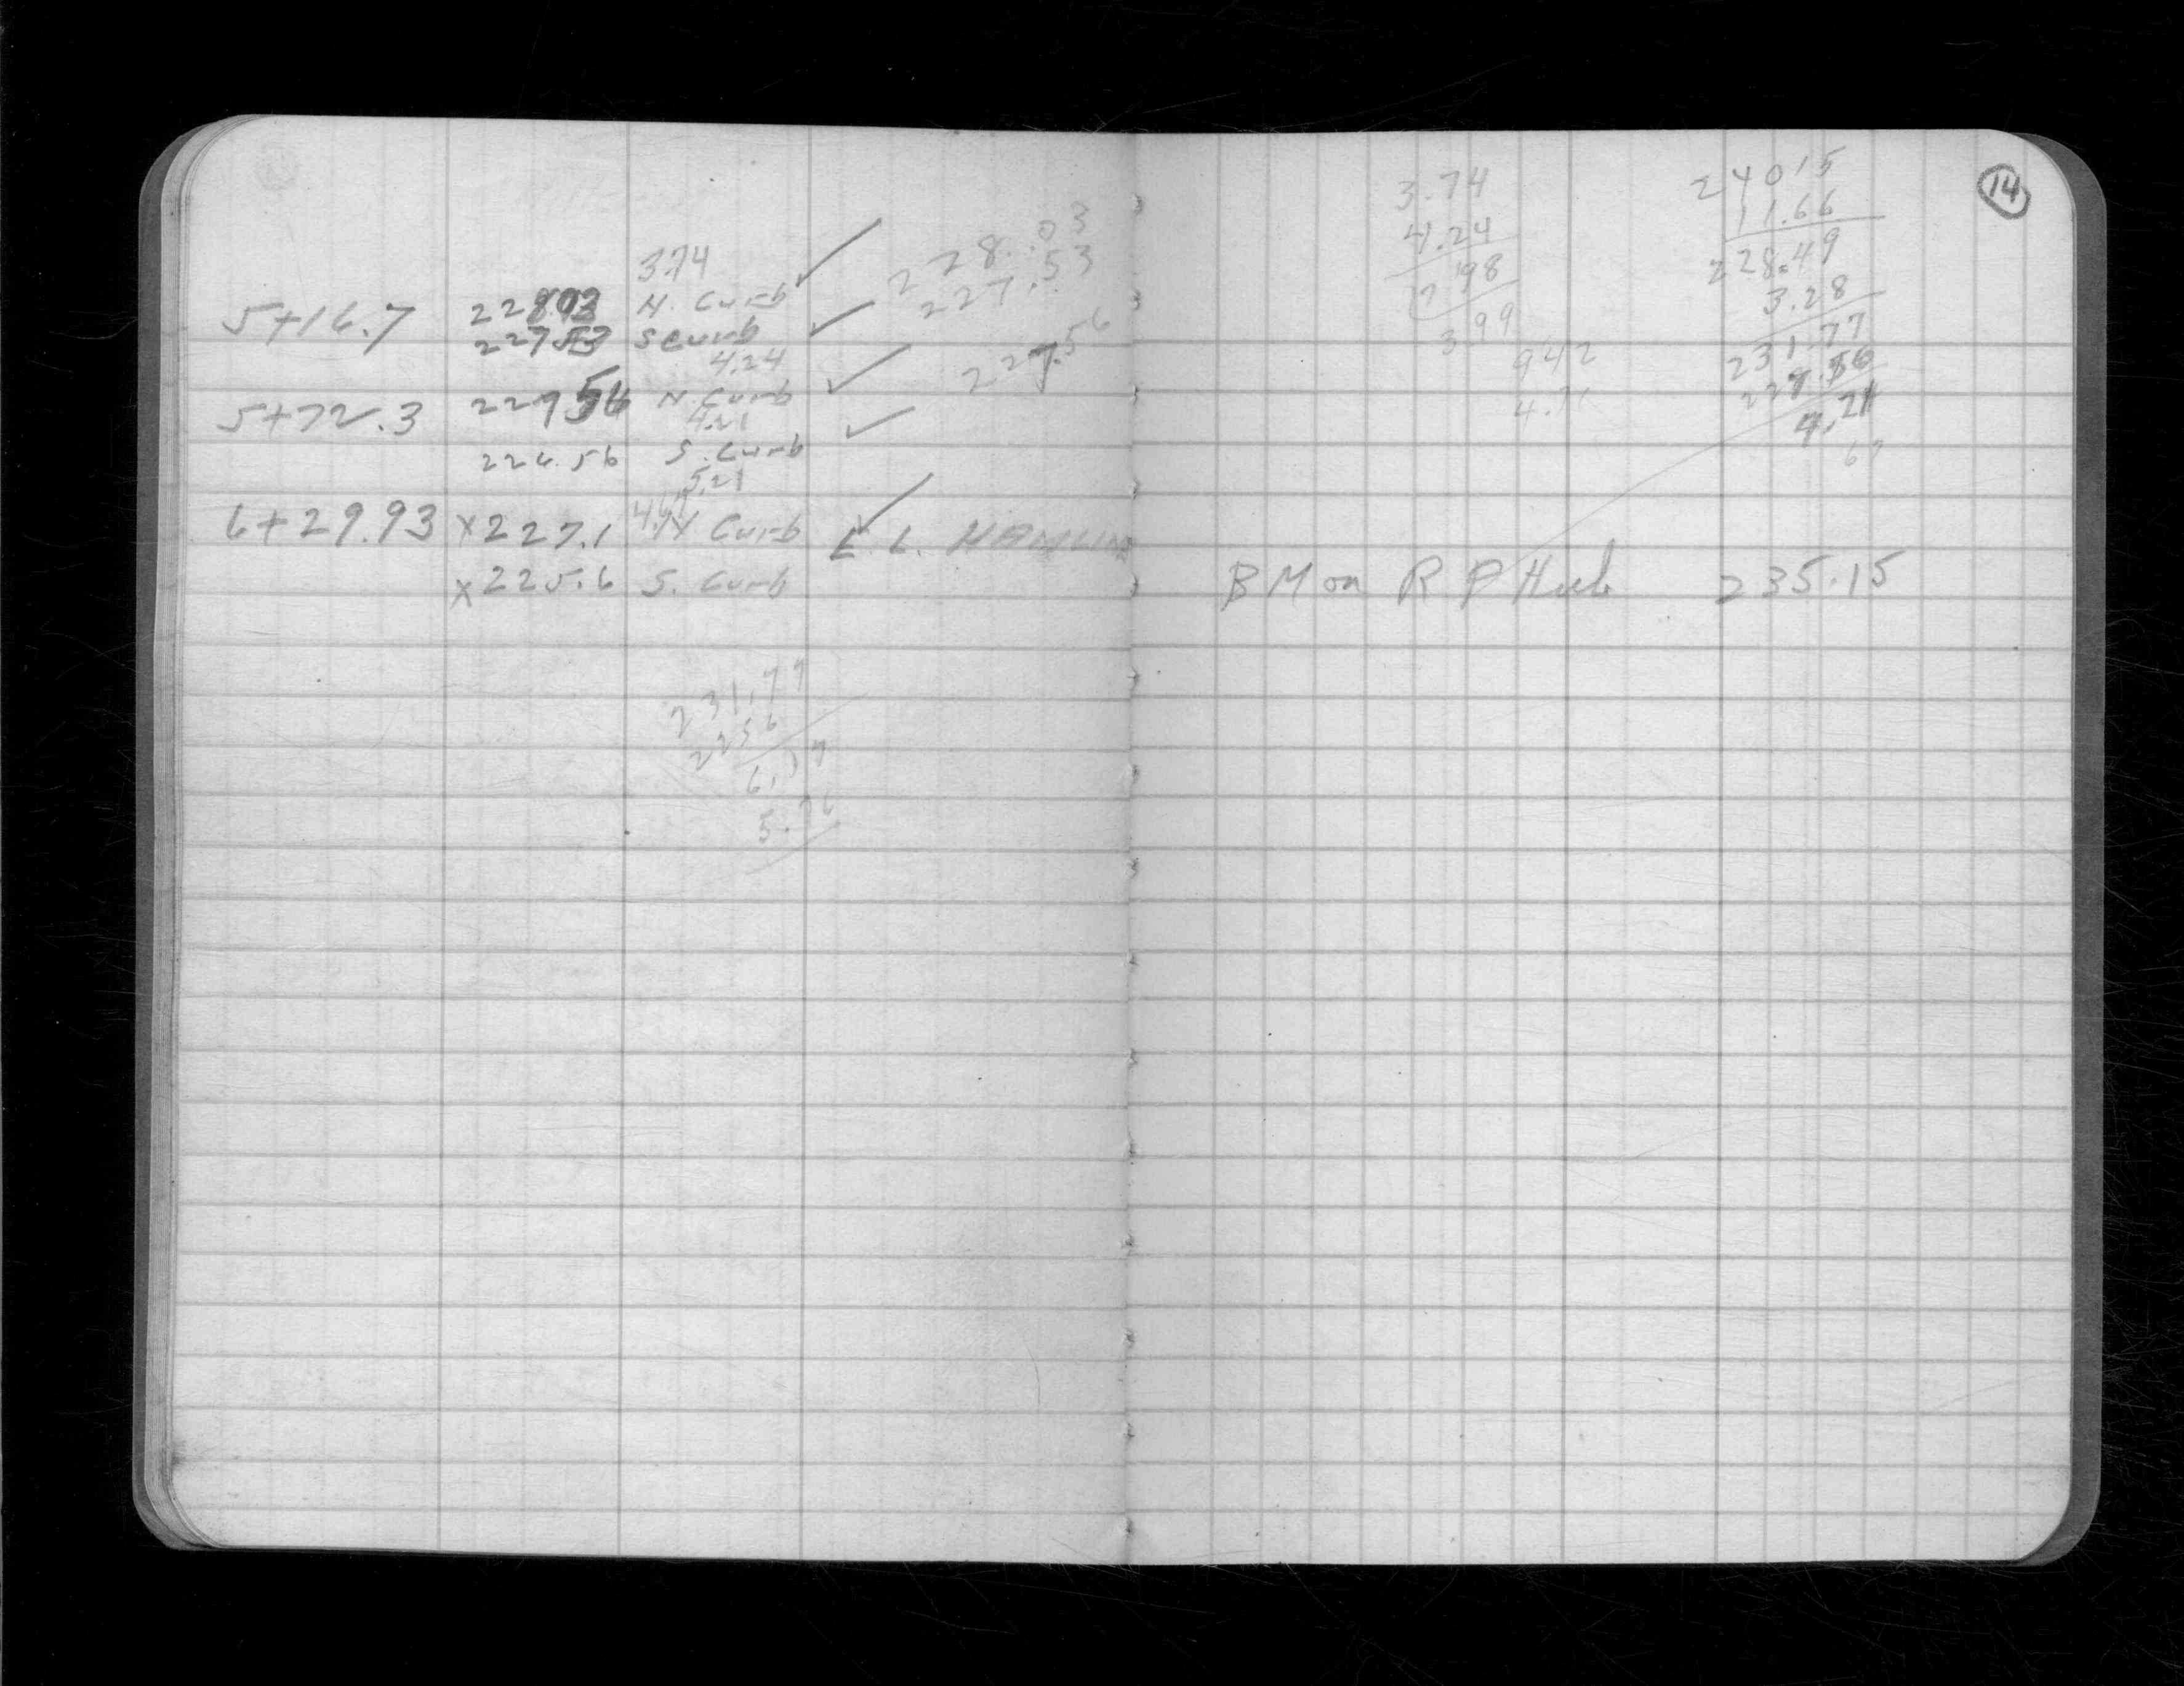 3.74
5+16.7 228.03 N. Curb ✓ 228.03
227.53 S Curb ✓ 227.53
4.24
5+72.3 227.56 N. Curb ✓ 227.56
4.21
226.56 S. Curb ✓
5.21
6+29.93 x227.1 4.67 N Curb ✓ L.L. HAMLIN
x225.6 S. Curb
231.77
225.6
6.17
14
3.74
4.24
7.98
3.99
942
4.71
24015
11.66
228.49
3.28
231.77
227.56
4.21
67
BM on R P Hub 235.15